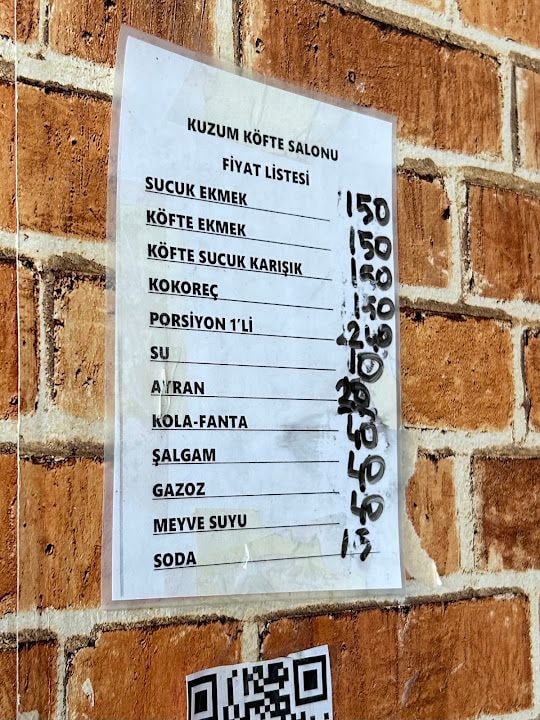 KUZUM KÖFTE SALONU
FİYAT LİSTESİ
SUCUK EKMEK 150
KÖFTE EKMEK 150
KÖFTE SUCUK KARIŞIK 150
KOKOREÇ 150
PORSİYON 1'Lİ 240
SU 10
AYRAN 20
KOLA-FANTA 40
ŞALGAM 40
GAZOZ 40
MEYVE SUYU
SODA 15